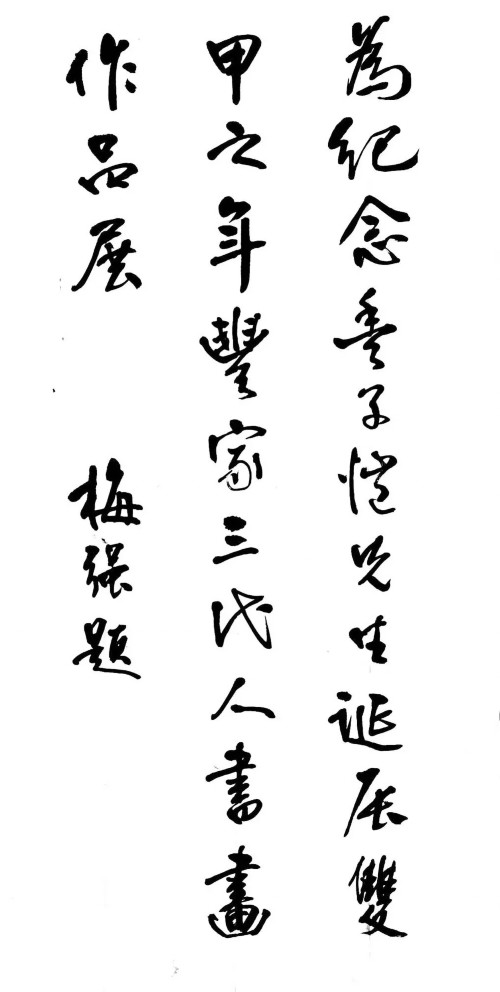 為纪念豐子愷先生誕辰雙
甲之年豐家三代人書畫
作品展
梅强題